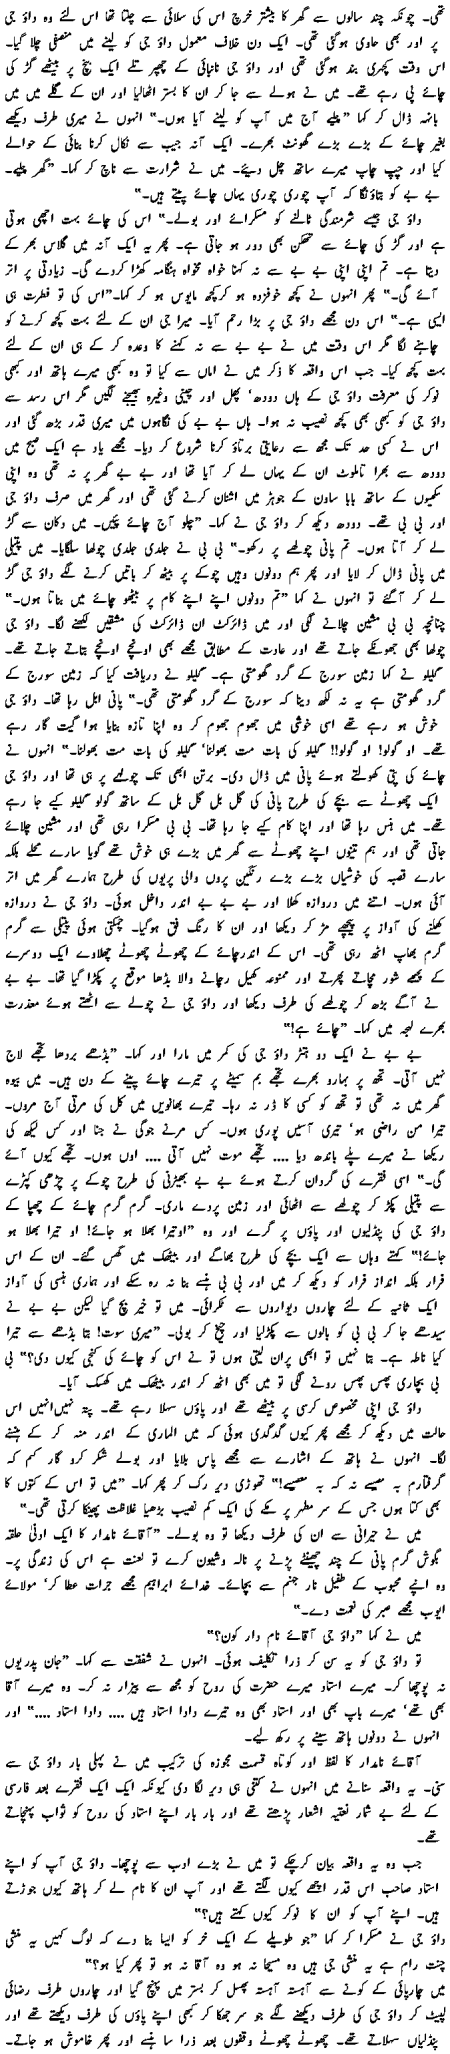 تھی۔ چونکہ چند سالوں سے گھر کا بیشتر خرچ اس کی سلائی سے چلتا تھا اس لئے وہ داؤ جی
پر اور بھی حاوی ہوگئی تھی۔ ایک دن خلاف معمول داؤ جی کو لینے میں منصفی چلا گیا۔
اس وقت کچہری بند ہوگئی تھی اور داؤ جی نانبائی کے چھپر تلے ایک بنچ پر بیٹھے گڑ کی
چائے پی رہے تھے۔ میں نے ہولے سے جا کر ان کا بستر اٹھالیا اور ان کے گلے میں
بانہہ ڈال کر کہا "چلیے آج میں آپ کو لینے آیا ہوں۔" انہوں نے میری طرف دیکھے
بغیر چائے کے بڑے بڑے گھونٹ بھرے۔ ایک آنہ جیب سے نکال کر نانبائی کے حوالے
کیا اور چپ چاپ میرے ساتھ چل دیئے۔ میں نے شرارت سے ناچ کر کہا۔ "گھر چلیے۔
بے بے کو بتاؤنگا کہ آپ چوری چوری یہاں چائے پیتے ہیں۔"
داؤ جی جیسے شرمندگی ٹالنے کو مسکرائے اور بولے۔" اس کی چائے بہت اچھی ہوتی
ہے اور گڑ کی چائے سے تھکن بھی دور ہو جاتی ہے۔ پھر یہ ایک آنہ میں گلاس بھر کے
دیتا ہے۔ تم اپنی بے بے سے نہ کہنا خواہ مخواہ ہنگامہ کھڑا کردے گی۔ زیادتی پر اتر
آئے گی۔" پھر انہوں نے کچھ خوفزدہ ہو کرکچھ مایوس ہو کر کہا۔"اس کی تو فطرت ہی
ایسی ہے۔" اس دن مجھے داؤ جی پر بڑا رحم آیا۔ میرا جی ان کے لئے بہت کچھ کرنے کو
چاہنے لگا مگر اس وقت میں نے بے بے سے نہ کہنے کا وعدہ کر کے ہی ان کے لئے
بہت کچھ کیا۔ جب اس واقعہ کا ذکر میں نے اماں سے کیا تو وہ کبھی میرے ہاتھ اور کبھی
نوکر کی معرفت داؤ جی کے ہاں دودھ' پھل اور چینی وغیرہ بھیجنے لگیں مگر اس رسد سے
داؤ جی کو کبھی بھی کچھ نصیب نہ ہوا۔ ہاں بے بے کی نگاہوں میں میری قدر بڑھ گئی اور
اس نے کسی حد تک مجھ سے رعایتی برتاؤ کرنا شروع کر دیا۔ مجھے یاد ہے ایک صبح میں
دودھ سے بھرا تاملوٹ ان کے یہاں لے کر آیا تھا اور بے بے گھر پر نہ تھی وہ اپنی
سکھیوں کے ساتھ بابا ساون کے جوہڑ میں اشنان کرنے گئی تھی اور گھر میں صرف داؤ جی
اور بی بی تھے۔ دودھ دیکھ کر داؤ جی نے کہا۔ "چلو آج چائے پئیں۔ میں دکان سے گڑ
لے کر آتا ہوں۔ تم پانی چولھے پر رکھو۔" بی بی نے جلدی جلدی چولھا سلگایا۔ میں پتیلی
میں پانی ڈال کر لایا اور پھر ہم دونوں وہیں چوکے پر بیٹھ کر باتیں کرنے لگے داؤ جی گڑ
لے کر آگئے تو انہوں نے کہا "تم دونوں اپنے اپنے کام پر بیٹھو چائے میں بناتا ہوں۔"
چنانچہ بی بی مشین چلانے لگی اور میں ڈائرکٹ ان ڈائرکٹ کی مشقیں لکھنے لگا۔ داؤ جی
چولھا بھی جھونکے جاتے تھے اور عادت کے مطابق مجھے بھی اونچے اونچے بتاتے جاتے تھے۔
گلیلو نے کہا زمین سورج کے گرد گھومتی ہے۔ گلیلو نے دریافت کیا کہ زمین سورج کے
گرد گھومتی ہے یہ نہ لکھ دینا کہ سورج کے گرد گھومتی تھی۔" پانی ابل رہا تھا۔ داؤ جی
خوش ہو رہے تھے اسی خوشی میں جھوم جھوم کر وہ اپنا تازہ بنایا ہوا گیت گار رہے
تھے۔ او گولو! او گولو!! گلیلو کی بات مت بھولنا' گلیلو کی بات مت بھولنا۔" انہوں نے
چائے کی پتی کھولتے ہوئے پانی میں ڈال دی۔ برتن ابھی تک چولھے پر ہی تھا اور داؤ جی
ایک چھوٹے سے بچے کی طرح پانی کی گل بل گل بل کے ساتھ گولو گلیلو کیے جا رہے
تھے۔ میں ہنس رہا تھا اور اپنا کام کیے جا رہا تھا۔ بی بی مسکرا رہی تھی اور مشین چلائے
جاتی تھی اور ہم تینوں اپنے چھوٹے سے گھر میں بڑے ہی خوش تھے گویا سارے محلے بلکہ
سارے قصبہ کی خوشیاں بڑے بڑے رنگین پروں والی پریوں کی طرح ہمارے گھر میں اتر
آئی ہوں۔ اتنے میں دروازہ کھلا اور بے بے اندر داخل ہوئی۔ داؤ جی نے دروازہ
کھلنے کی آواز پر پیچھے مڑ کر دیکھا اور ان کا رنگ فق ہوگیا۔ چمکتی ہوئی پتیلی سے گرم
گرم بھاپ اٹھ رہی تھی۔ اس کے اندرچائے کے چھوٹے چھوٹے چھلاوے ایک دوسرے
کے پیچھے شور مچاتے پھرتے اور ممنوعہ کھیل رچانے والا بڈھا موقع پر پکڑا گیا تھا۔ بے بے
نے آگے بڑھ کر چولھے کی طرف دیکھا اور داؤ جی نے چولے سے اٹھتے ہوئے معذرت
بھرے لہجہ میں کہا۔ "چائے ہے!"
بے بے نے ایک دو ہتڑ داؤ جی کی کمر میں مارا اور کہا۔ "بڈھے بردھا تجھے لاج
نہیں آتی۔ تجھ پر بہارو بھرے تجھے یم سمیٹے یہ تیرے چائے پینے کے دن ہیں۔ میں بیوہ
گھر میں نہ تھی تو تجھ کو کسی کا ڈر نہ رہا۔ تیرے بھانویں میں کل کی مرتی آج مروں۔
تیرا من راضی ہو' تیری آسیں پوری ہوں۔ کس مرنے جوگی نے جنا اور کس لیکھ کی
ریکھا نے میرے پلے باندھ دیا .... تجھے موت نہیں آتی .... اوں ہوں۔ تجھے کیوں آئے
گی۔" اسی فقرے کی گردان کرتے ہوئے بے بے بھیڑنی کی طرح چوکے پر چڑھی کپڑے
سے پتیلی پکڑ کر چولھے سے اٹھائی اور زمین پردے ماری۔ گرم گرم چائے کے چھپا کے
داؤ جی کی پنڈلیوں اور پاؤں پر گرے اور وہ "اوتیرا بھلا ہو جائے! او تیرا بھلا ہو
جائے!" کہتے وہاں سے ایک بچے کی طرح بھاگے اور بیٹھک میں گھس گئے۔ ان کے اس
فرار بلکہ انداز فرار کو دیکھ کر میں اور بی بی ہنسے بنا نہ رہ سکے اور ہماری ہنسی کی آواز
ایک ثانیہ کے لئے چاروں دیواروں سے ٹکرائی۔ میں تو خیر بچ گیا لیکن بے بے نے
سیدھے جا کر بی بی کو بالوں سے پکڑلیا اور چیخ کر بولی۔ "میری سوت! بتا بڈھے سے تیرا
کیا ناطہ ہے۔ بتا نہیں تو ابھی پران لیتی ہوں تو نے اس کو چائے کی کنجی کیوں دی؟" بی
بی بیچاری پھس پھس رونے لگی تو میں بھی اٹھ کر اندر بیٹھک میں کھسک آیا۔
داؤ جی اپنی مخصوص کرسی پر بیٹھے تھے اور پاؤں سہلا رہے تھے۔ پتہ نہیں انہیں اس
حالت میں دیکھ کر مجھے پھر کیوں گدگدی ہوئی کہ میں الماری کے اندر منہ کر کے ہنسنے
لگا۔ انہوں نے ہاتھ کے اشارے سے مجھے پاس بلایا اور بولے شکر کرو گار کنم کہ
گرفتارم بہ مصیبے نہ کہ بہ معصیے!" تھوڑی دیر رک کر پھر کہا۔ "میں تو اس کے کتوں کا
بھی کتا ہوں جس کے سر مطہر پر مکے کی ایک کم نصیب بڑھیا غلاظت پھینکا کرتی تھی۔"
میں نے حیرانی سے ان کی طرف دیکھا تو وہ بولے۔ "آقائے نامدار کا ایک ادنیٰ حلقہ
بگوش گرم پانی کے چند چھینٹے پڑنے پر نالہ وشیون کرے تو لعنت ہے اس کی زندگی پر۔
وہ اپنے محبوب کے طفیل نار جہنم سے بچائے۔ خدائے ابراہیم مجھے جرات عطا کر' مولائے
ایوب مجھے صبر کی نعمت دے۔"
میں نے کہا "داؤ جی آقائے نام دار کون؟"
تو داؤ جی کو یہ سن کر ذرا تکلیف ہوئی۔ انہوں نے شفقت سے کہا۔ "جان پدریوں
نہ پوچھا کر۔ میرے استاد میرے حضرت کی روح کو مجھ سے بیزار نہ کر۔ وہ میرے آقا
بھی تھے' میرے باپ بھی اور استاد بھی وہ تیرے دادا استاد ہیں .... دادا استاد ...." اور
انہوں نے دونوں ہاتھ سینے پر رکھ لیے۔
آقائے نامدار کا لفظ اور کوتاہ قسمت مجوزہ کی ترکیب میں نے پہلی بار داؤ جی سے
سنی۔ یہ واقعہ سنانے میں انہوں نے کتنی ہی دیر لگا دی کیونکہ ایک ایک فقرے بعد فارسی
کے لئے بے شمار نعتیہ اشعار پڑھتے تھے اور بار بار اپنے استاد کی روح کو ثواب پہنچاتے
تھے۔
جب وہ یہ واقعہ بیان کرچکے تو میں نے بڑے ادب سے پوچھا۔ داؤ جی آپ کو اپنے
استاد صاحب اس قدر اچھے کیوں لگتے تھے اور آپ ان کا نام لے کر ہاتھ کیوں جوڑتے
ہیں۔ اپنے آپ کو ان کا نوکر کیوں کہتے ہیں؟"
داؤ جی نے مسکرا کر کہا "جو طویلے کے ایک خر کو ایسا بنا دے کہ لوگ کہیں یہ منشی
چنت رام ہے یہ منشی جی ہیں وہ مسیحا نہ ہو وہ آقا نہ ہو تو پھر کیا ہو؟"
میں چارپائی کے کونے سے آہستہ آہستہ پھسل کر بستر میں پہنچ گیا اور چاروں طرف رضائی
لپیٹ کر داؤ جی کی طرف دیکھنے لگے جو سر جھکا کر کبھی اپنے پاؤں کی طرف دیکھتے تھے اور
پنڈلیاں سہلاتے تھے۔ چھوٹے چھوٹے وقفوں بعد ذرا سا ہنسے اور پھر خاموش ہو جاتے۔